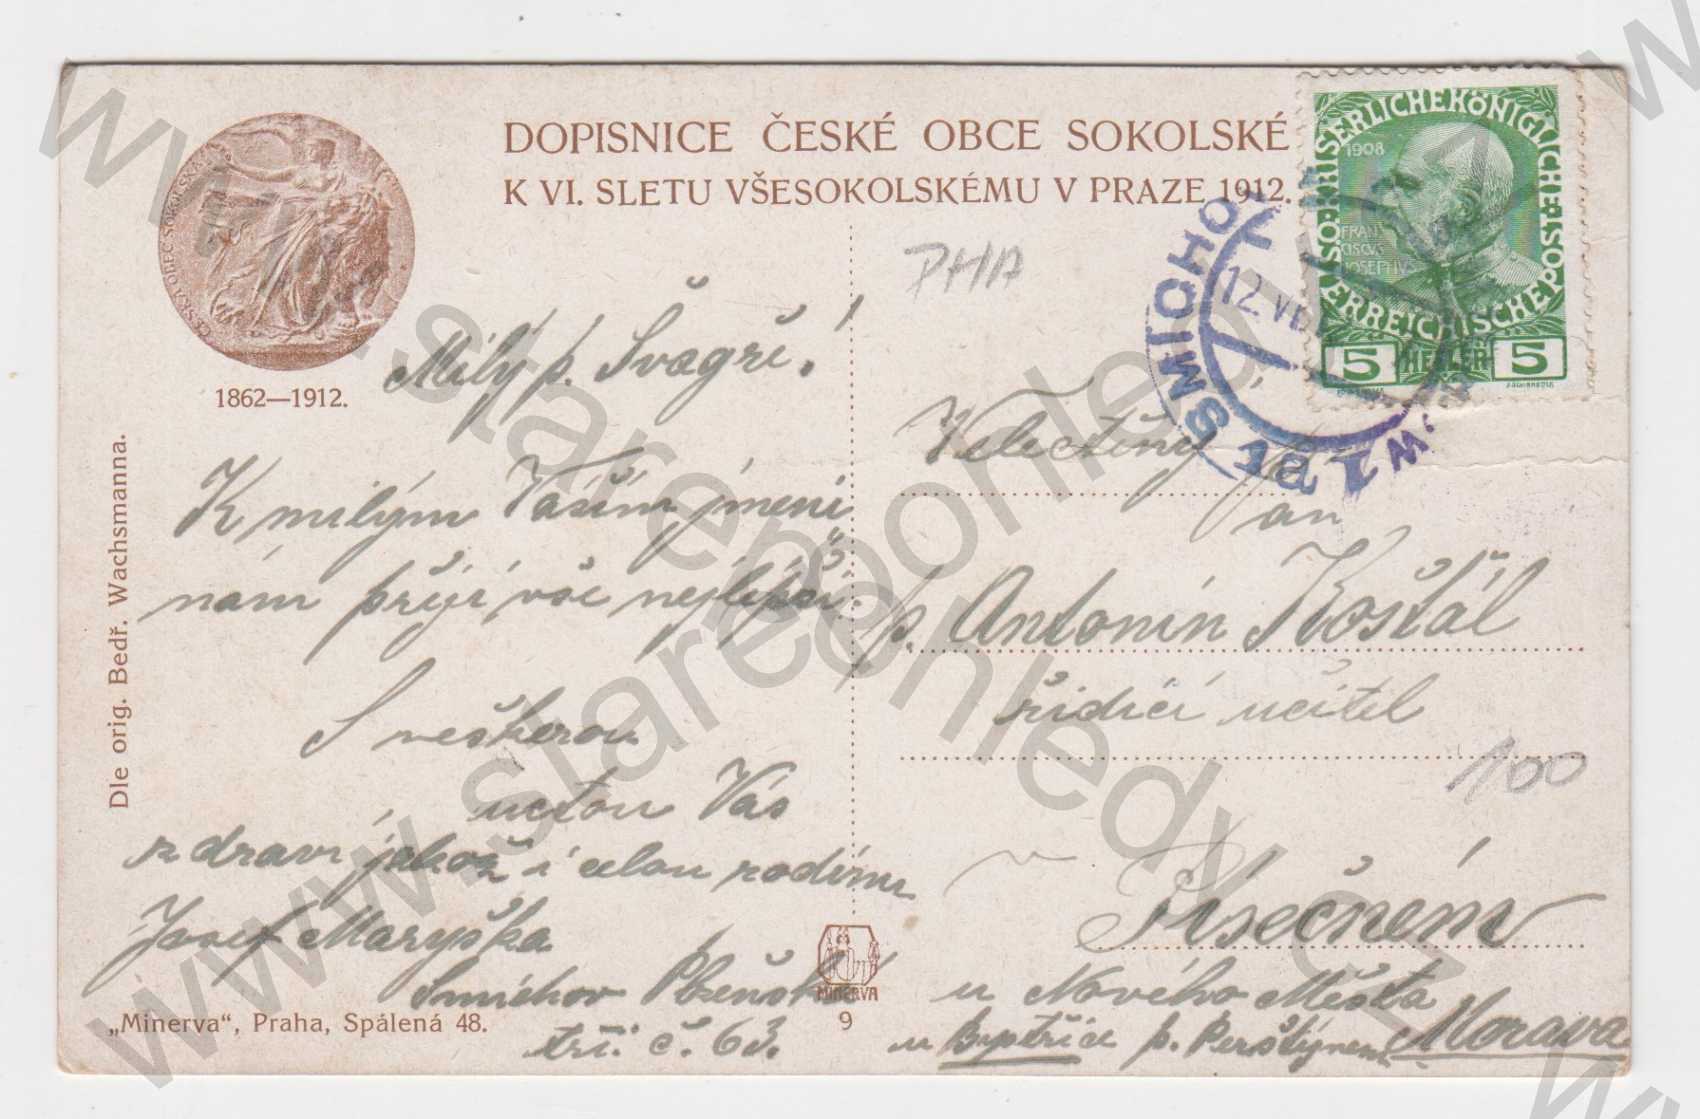 DOPISNICE ČESKÉ OBCE SOKOLSKÉ
K VI. SLETU VŠESOKOLSKÉMU V PRAZE 1912.
ČESKÁ OBEC SOKOLSKÁ
1862—1912.
Dle orig. Bedř. Wachsmanna.
PHA
Milý p. Švagře!
K milým Vašim jmeni
nám přeji vše nejlepší.
S veškerou
uctou Vás
zdraví jakož i celou rodinu
Josef Maryška
Smíchov Plzeňská
tří. č. 63.
„Minerva“, Praha, Spálená 48.
MINERVA
9
KAISERLICHEKÖNIGLICHE
ÖSTERREICHISCHE POST
1908
FRAN
CISCUS
JOSEPHVS
5 HELLER 5
SMICHOV 1
12. VI
Velectěný
pan
p. Antonín Košťál
řídící učitel
100
v Písečném
u Nového Města
u Bystřice p. Perštýnem Morava
www.starepohledy.cz
www.starepohledy.cz